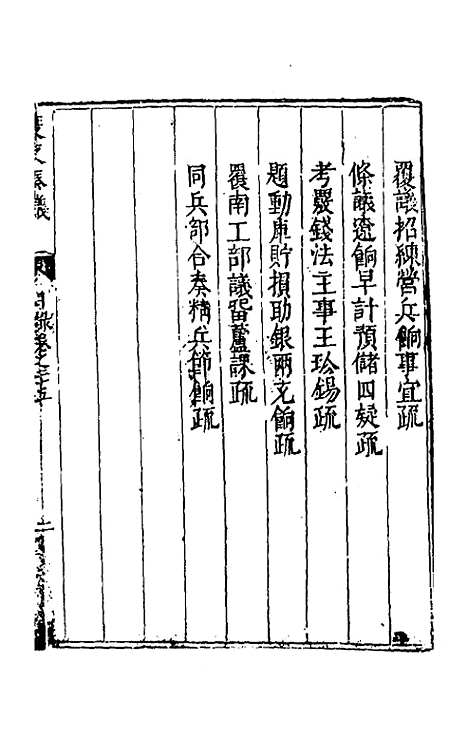 覆議招練營兵餉事宜疏
條議遼餉早計預儲四疑疏
考覈錢法主事王珍錫疏
題動庫貯損助銀兩充餉疏
覆南工部議留蘆課疏
同兵部合奏精兵節餉疏
目錄卷之三十五